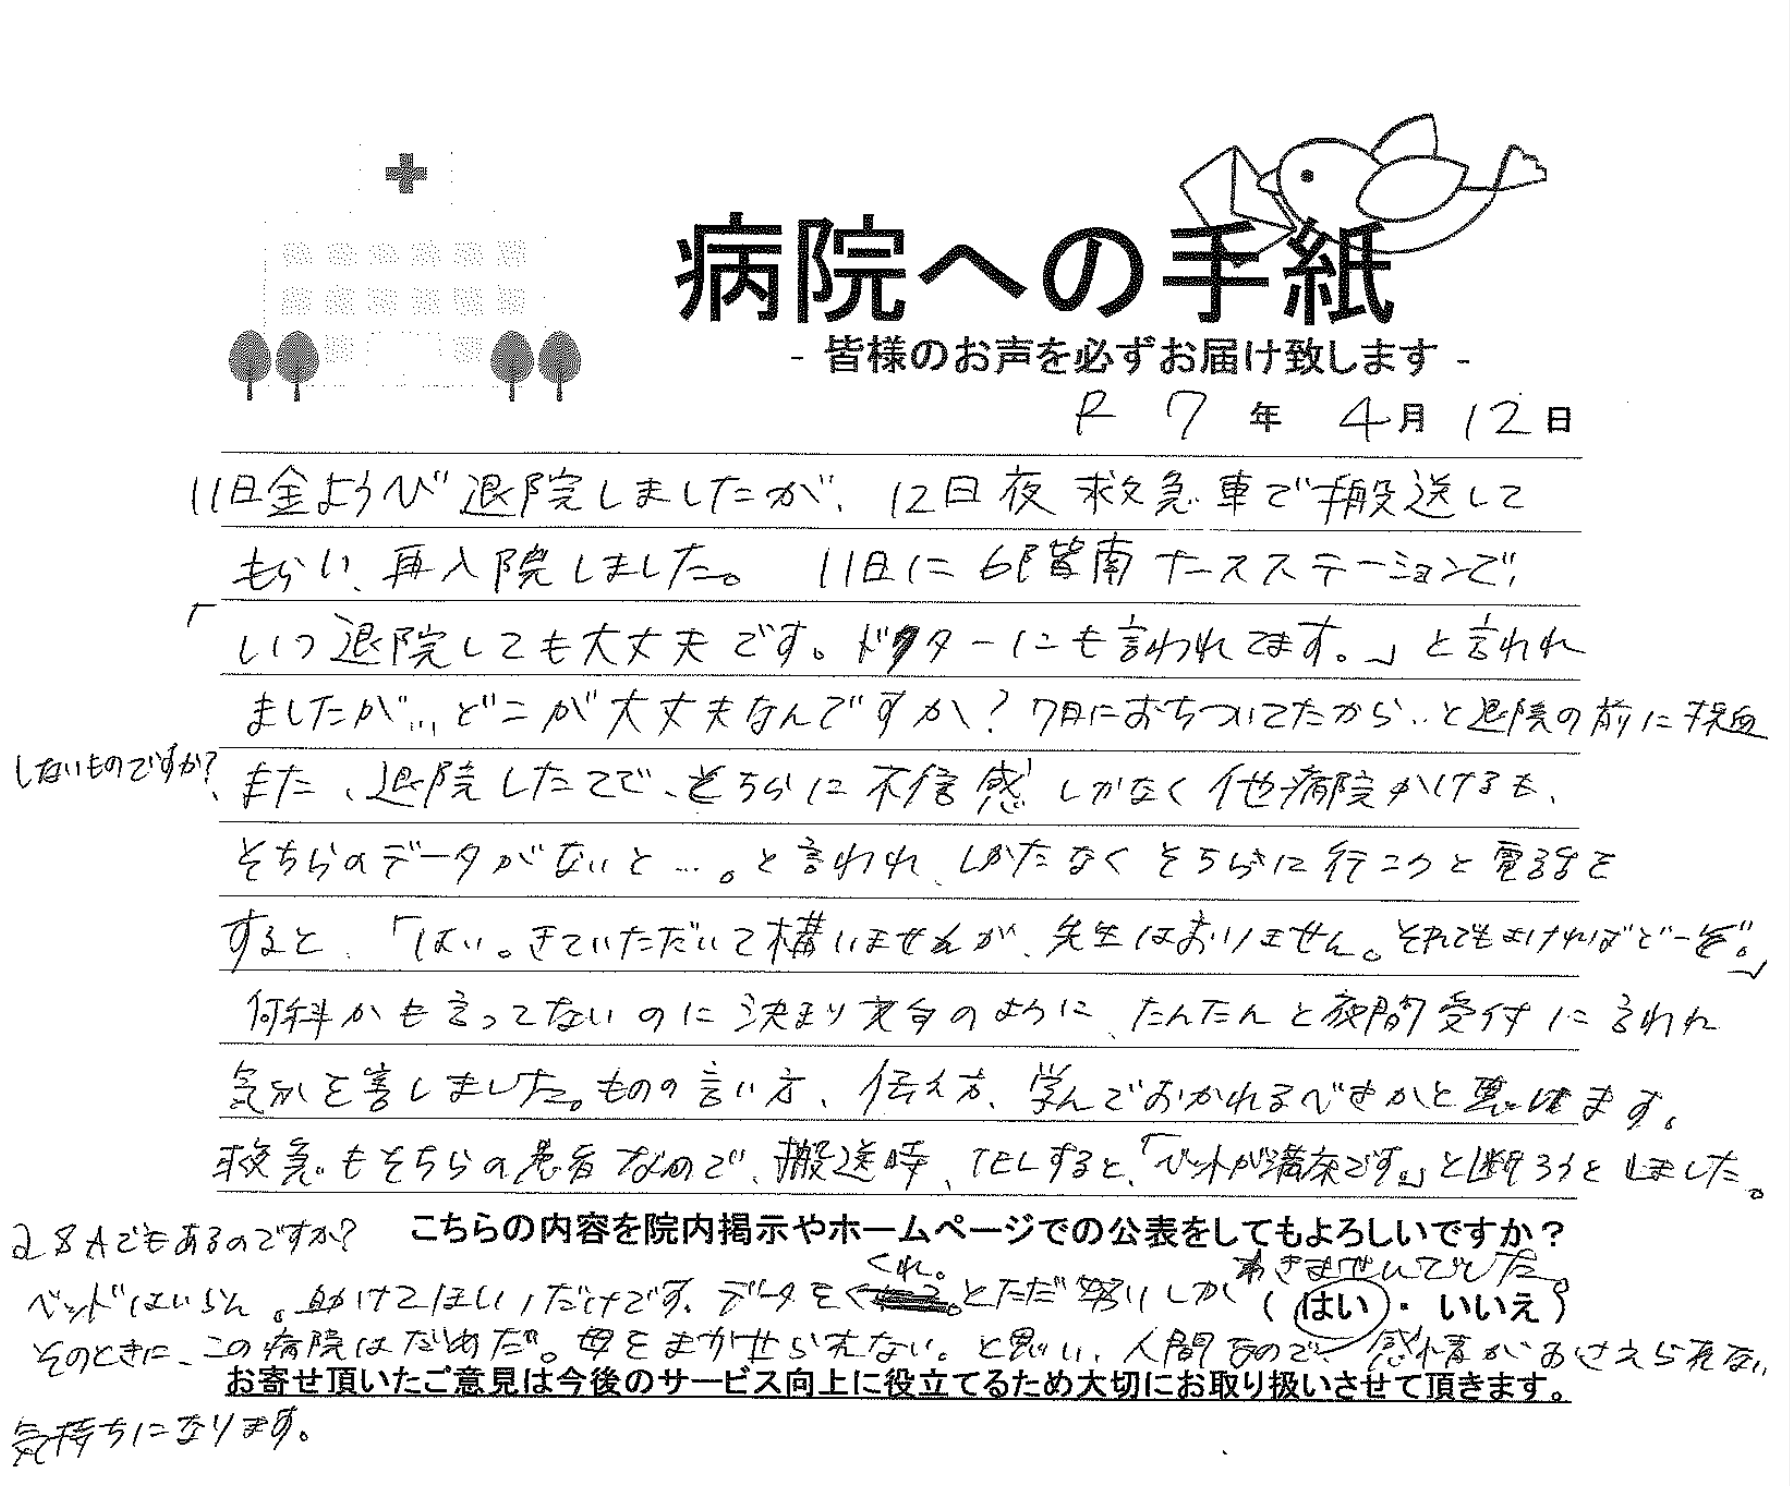 病院への手紙
- 皆様のお声を必ずお届け致します -
R 7 年 4月 12日
11日金ようび退院しましたが、12日夜 救急車で搬送して
もらい、再入院しました。 11日に6階南ナースステーションで、
「いつ退院しても大丈夫です。ドクターにも言われてます。」と言われ
ましたが… どこが大丈夫なんですか?7日におちついてたから…と退院の前に採血
しないものですか?
また、退院したてで、そちらに不信感しかなく他病院かけるも、
そちらのデータがないと…。と言われ、しかたなくそちらに行こうと電話を
すると、「はい。きていただいて構いませんが、先生はおりません。それでもよければどーぞ。」
何科かも言ってないのに決まり文句のように、たんたんと夜間受付に言われ
気分を害しました。ものの言い方、伝え方、学んでおかれるべきかと思います。
救急もそちらの患者なので、搬送時、TELすると、「ベットが満床です。」と断ろうとしました。
Q&Aでもあるのですか?
こちらの内容を院内掲示やホームページでの公表をしてもよろしいですか?
ベッドはいらん。助けてほしいだけです。データをくれ。とただ怒りしかわきませんでした。
( はい ・ いいえ )
そのときに、この病院はだめだ。母をまかせられない。と思い、人間なので、感情がおさえられない
お寄せ頂いたご意見は今後のサービス向上に役立てるため大切にお取り扱いさせて頂きます。
気持ちになります。